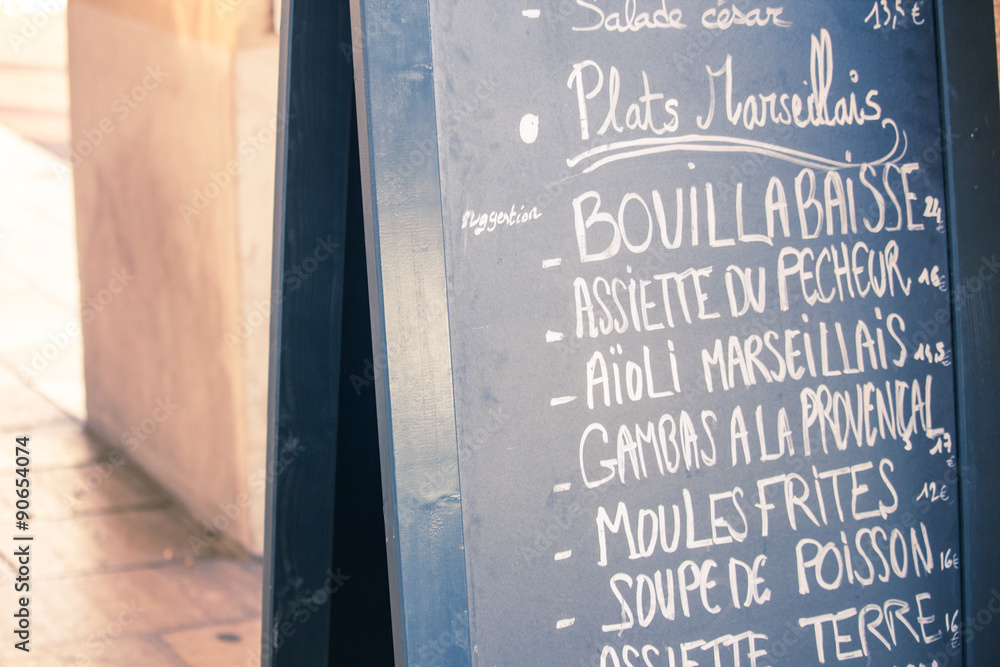 - Salade césar 13,5€
Plats Marseillais
suggestion
BOUILLABAISSE 24€
- ASSIETTE DU PECHEUR 16€
- AÏOLI MARSEILLAIS 14,5€
- GAMBAS A LA PROVENÇAL 17€
- MOULES FRITES 12€
- SOUPE DE POISSON 16€
- ASSIETTE TERRE 16€
Adobe Stock | #90654074